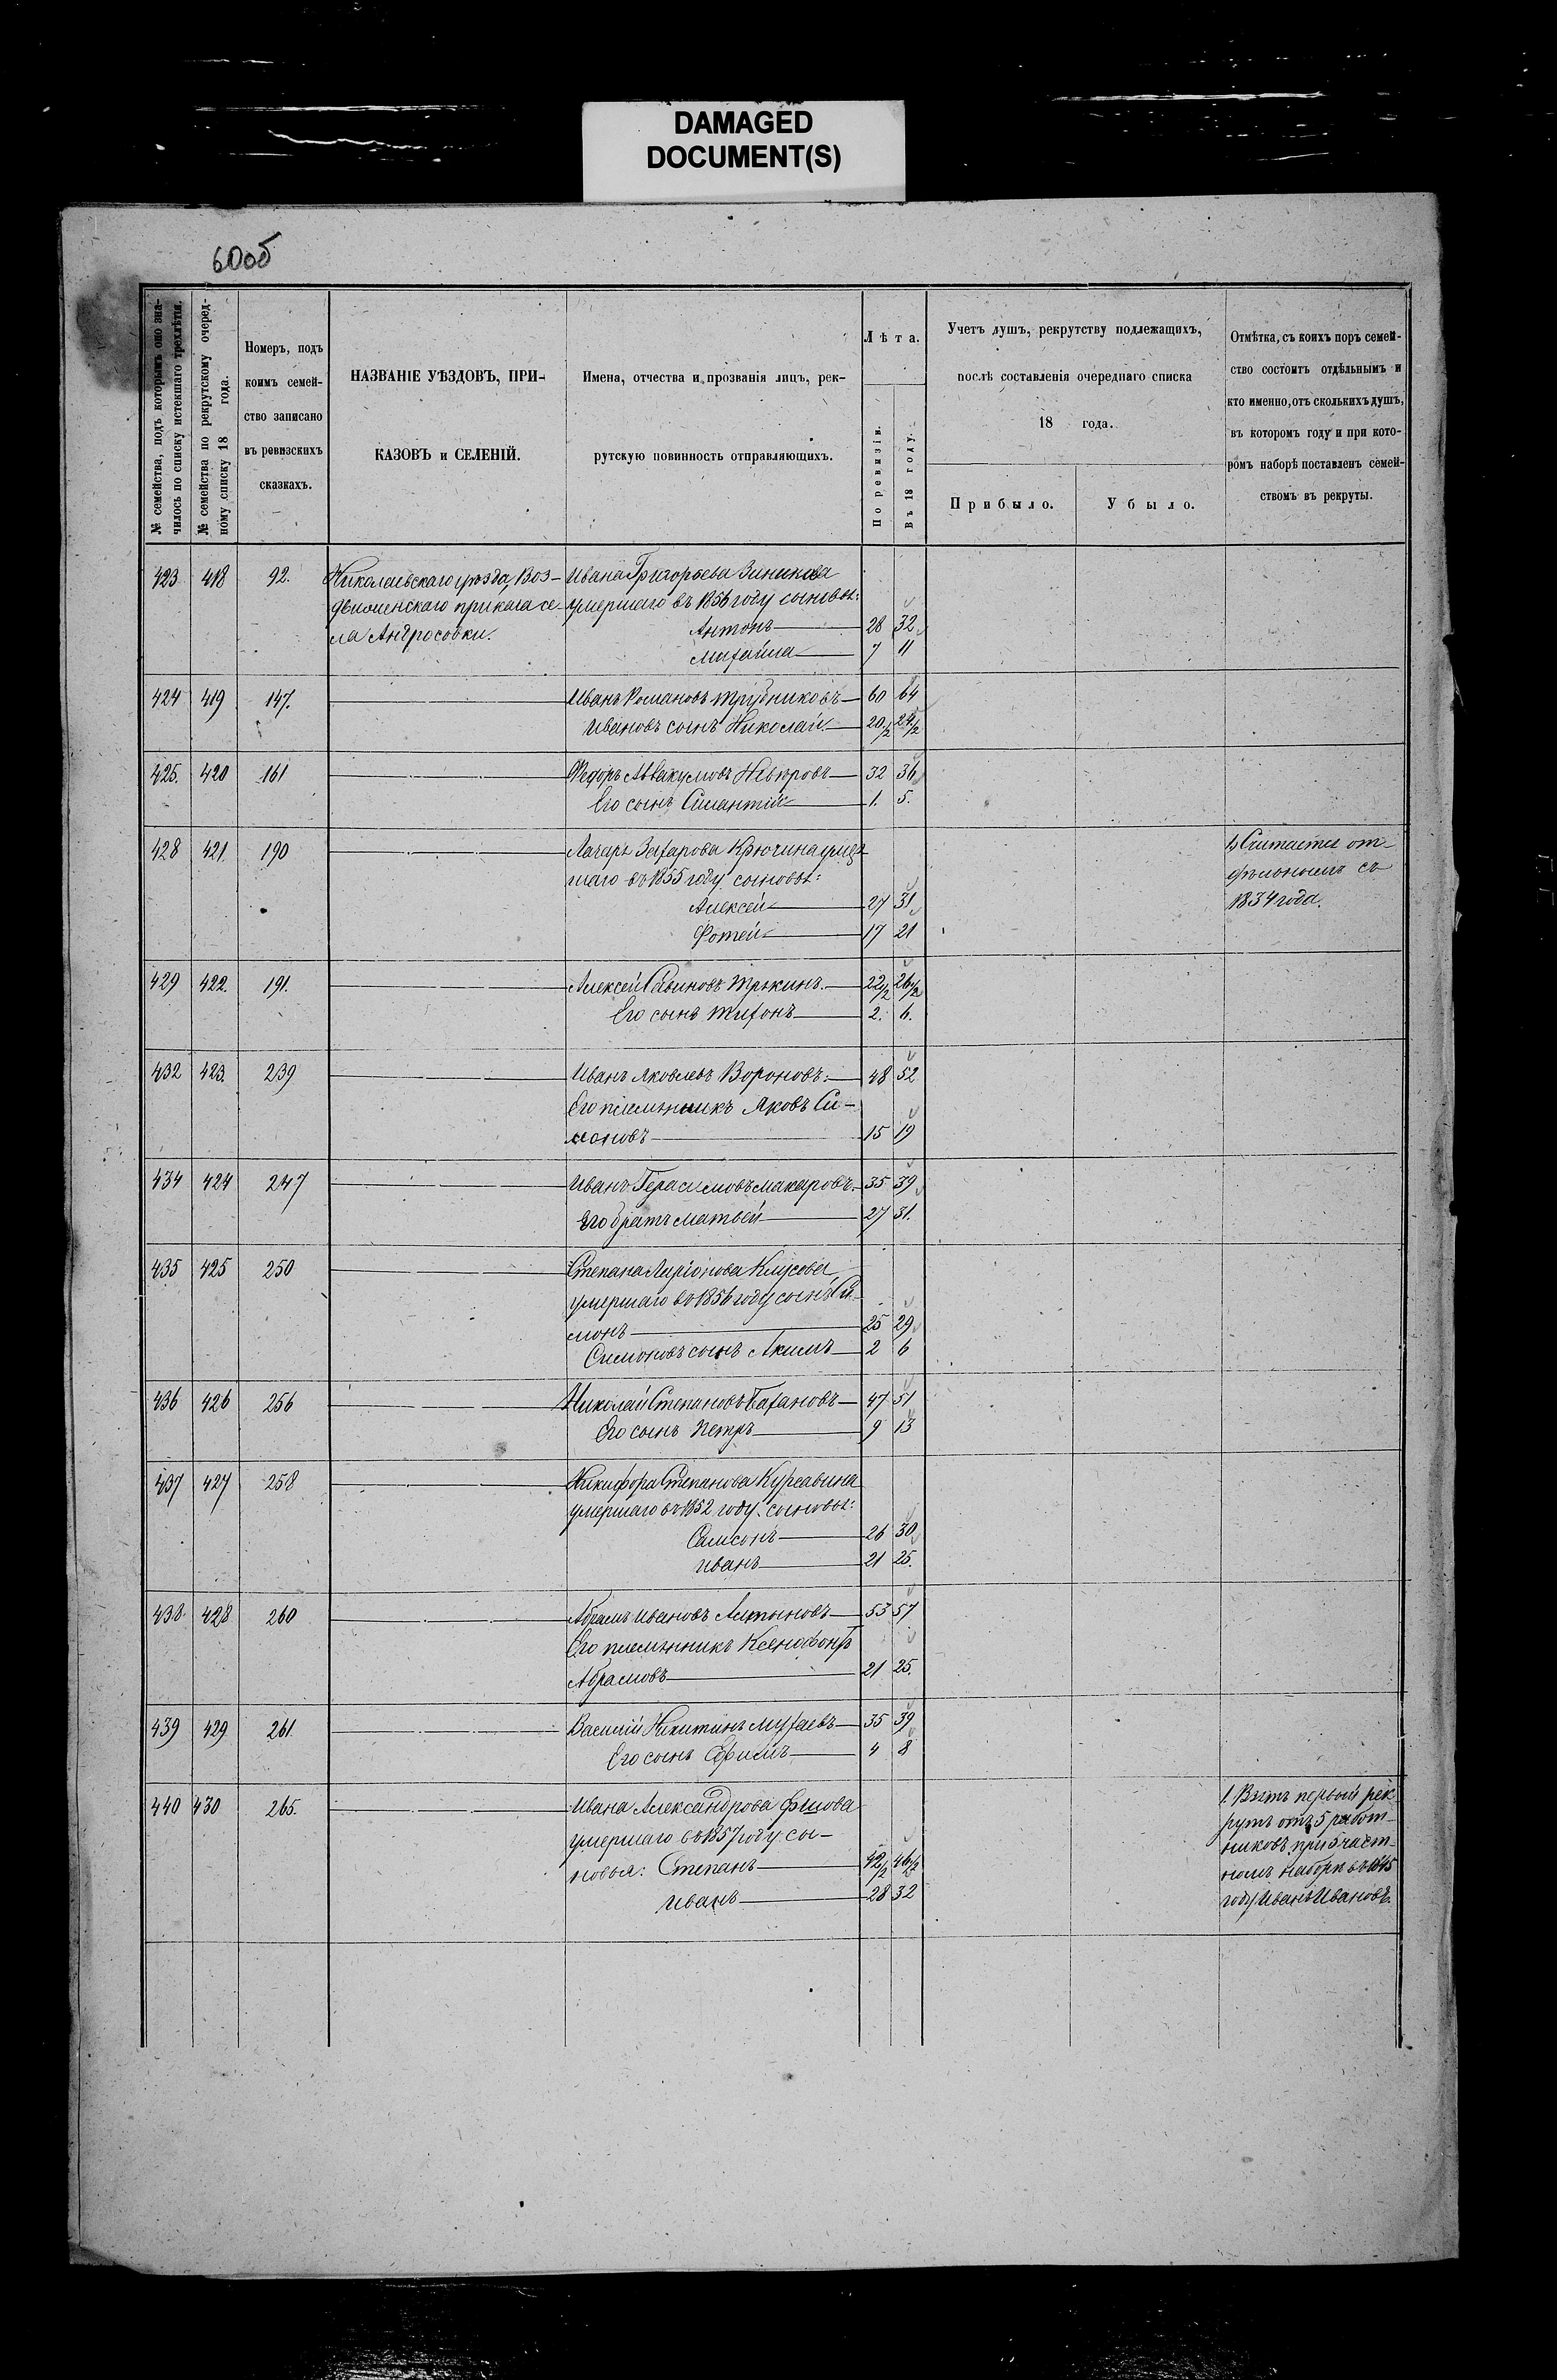 DAMAGED
DOCUMENT(S)
60об
№ семейства, подъ которымъ оно зна-
чилось по списку истекшаго трехлѣтія.
№ семейства по рекрутскому очеред-
ному списку 18 года.
Номеръ, подъ
коимъ семей-
ство записано
въ ревизскихъ
сказкахъ.
НАЗВАНІЕ УѢЗДОВЪ, ПРИ-
КАЗОВЪ и СЕЛЕНІЙ.
Имена, отчества и прозванія лицъ, рек-
рутскую повинность отправляющихъ.
Лѣта.
По ревизіи.
Въ 18 году.
Учетъ душъ, рекрутству подлежащихъ,
послѣ составленія очереднаго списка
18 года.
Прибыло.
Убыло.
Отмѣтка, съ коихъ поръ семей-
ство состоитъ отдѣльнымъ и
кто именно, отъ сколькихъ душъ,
въ которомъ году и при кото-
ромъ наборѣ поставленъ семей-
ствомъ въ рекруты.
423 418 92. Николаевскаго уѣзда, Воз- Ивана Григорьева Зиникова
движенскаго приказа се- умершаго въ 1856 году сыновья:
ла Антросовки. Антонъ 28 32
Михайла 7 11
424 419 147. Иванъ Романовъ Трубниковъ 60 64
Ивановъ сынъ Николай 20½ 24½
425. 420 161 Федоръ Аввакумовъ 32 36
Его сынъ 1. 5.
428 421. 190 Лазаря Захарова Крючина умер
шаго въ 1855 году сыновья:
Алексей 27 31
Фотей 17 21
1) Считается от-
дѣльнымъ съ
1834 года.
429 422. 191. Алексей Савиновъ 22½ 26½
Его сынъ Тихонъ 2. 6.
432 423. 239 Иванъ Яковлевъ Вороновъ: 48 52
Его племянникъ Яковъ Си-
моновъ 15 19
434 424 247 Иванъ Герасимовъ Макаровъ 35 39
Его братъ Матвей 27 31.
435 425 250 Степана Ларіонова
умершаго въ 1856 году сынъ Си-
монъ 25 29
Симоновъ сынъ Акимъ 2 6
436 426 256 Николай Степановъ 47 51
Его сынъ Петръ 9 13
437 427 258 Никифора Степанова Курсавина
умершаго въ 1852 году сыновья:
Самсонъ 26 30
Иванъ 21 25.
438. 428 260 Абрамъ Ивановъ 53 57
Его племянникъ Ксенофонтъ
Абрамовъ 21 25.
439 429 261. Василий Никитинъ 35 39
Его сынъ Ефимъ 4 8
440 430 265. Ивана Александрова
умершаго въ 1857 году сы-
новья: Степанъ 42½ 46½
Иванъ 28 32
1. Взятъ первый рек
рутъ отъ 5 работ-
никовъ при част-
номъ наборѣ въ 1845
году Иванъ Ивановъ.